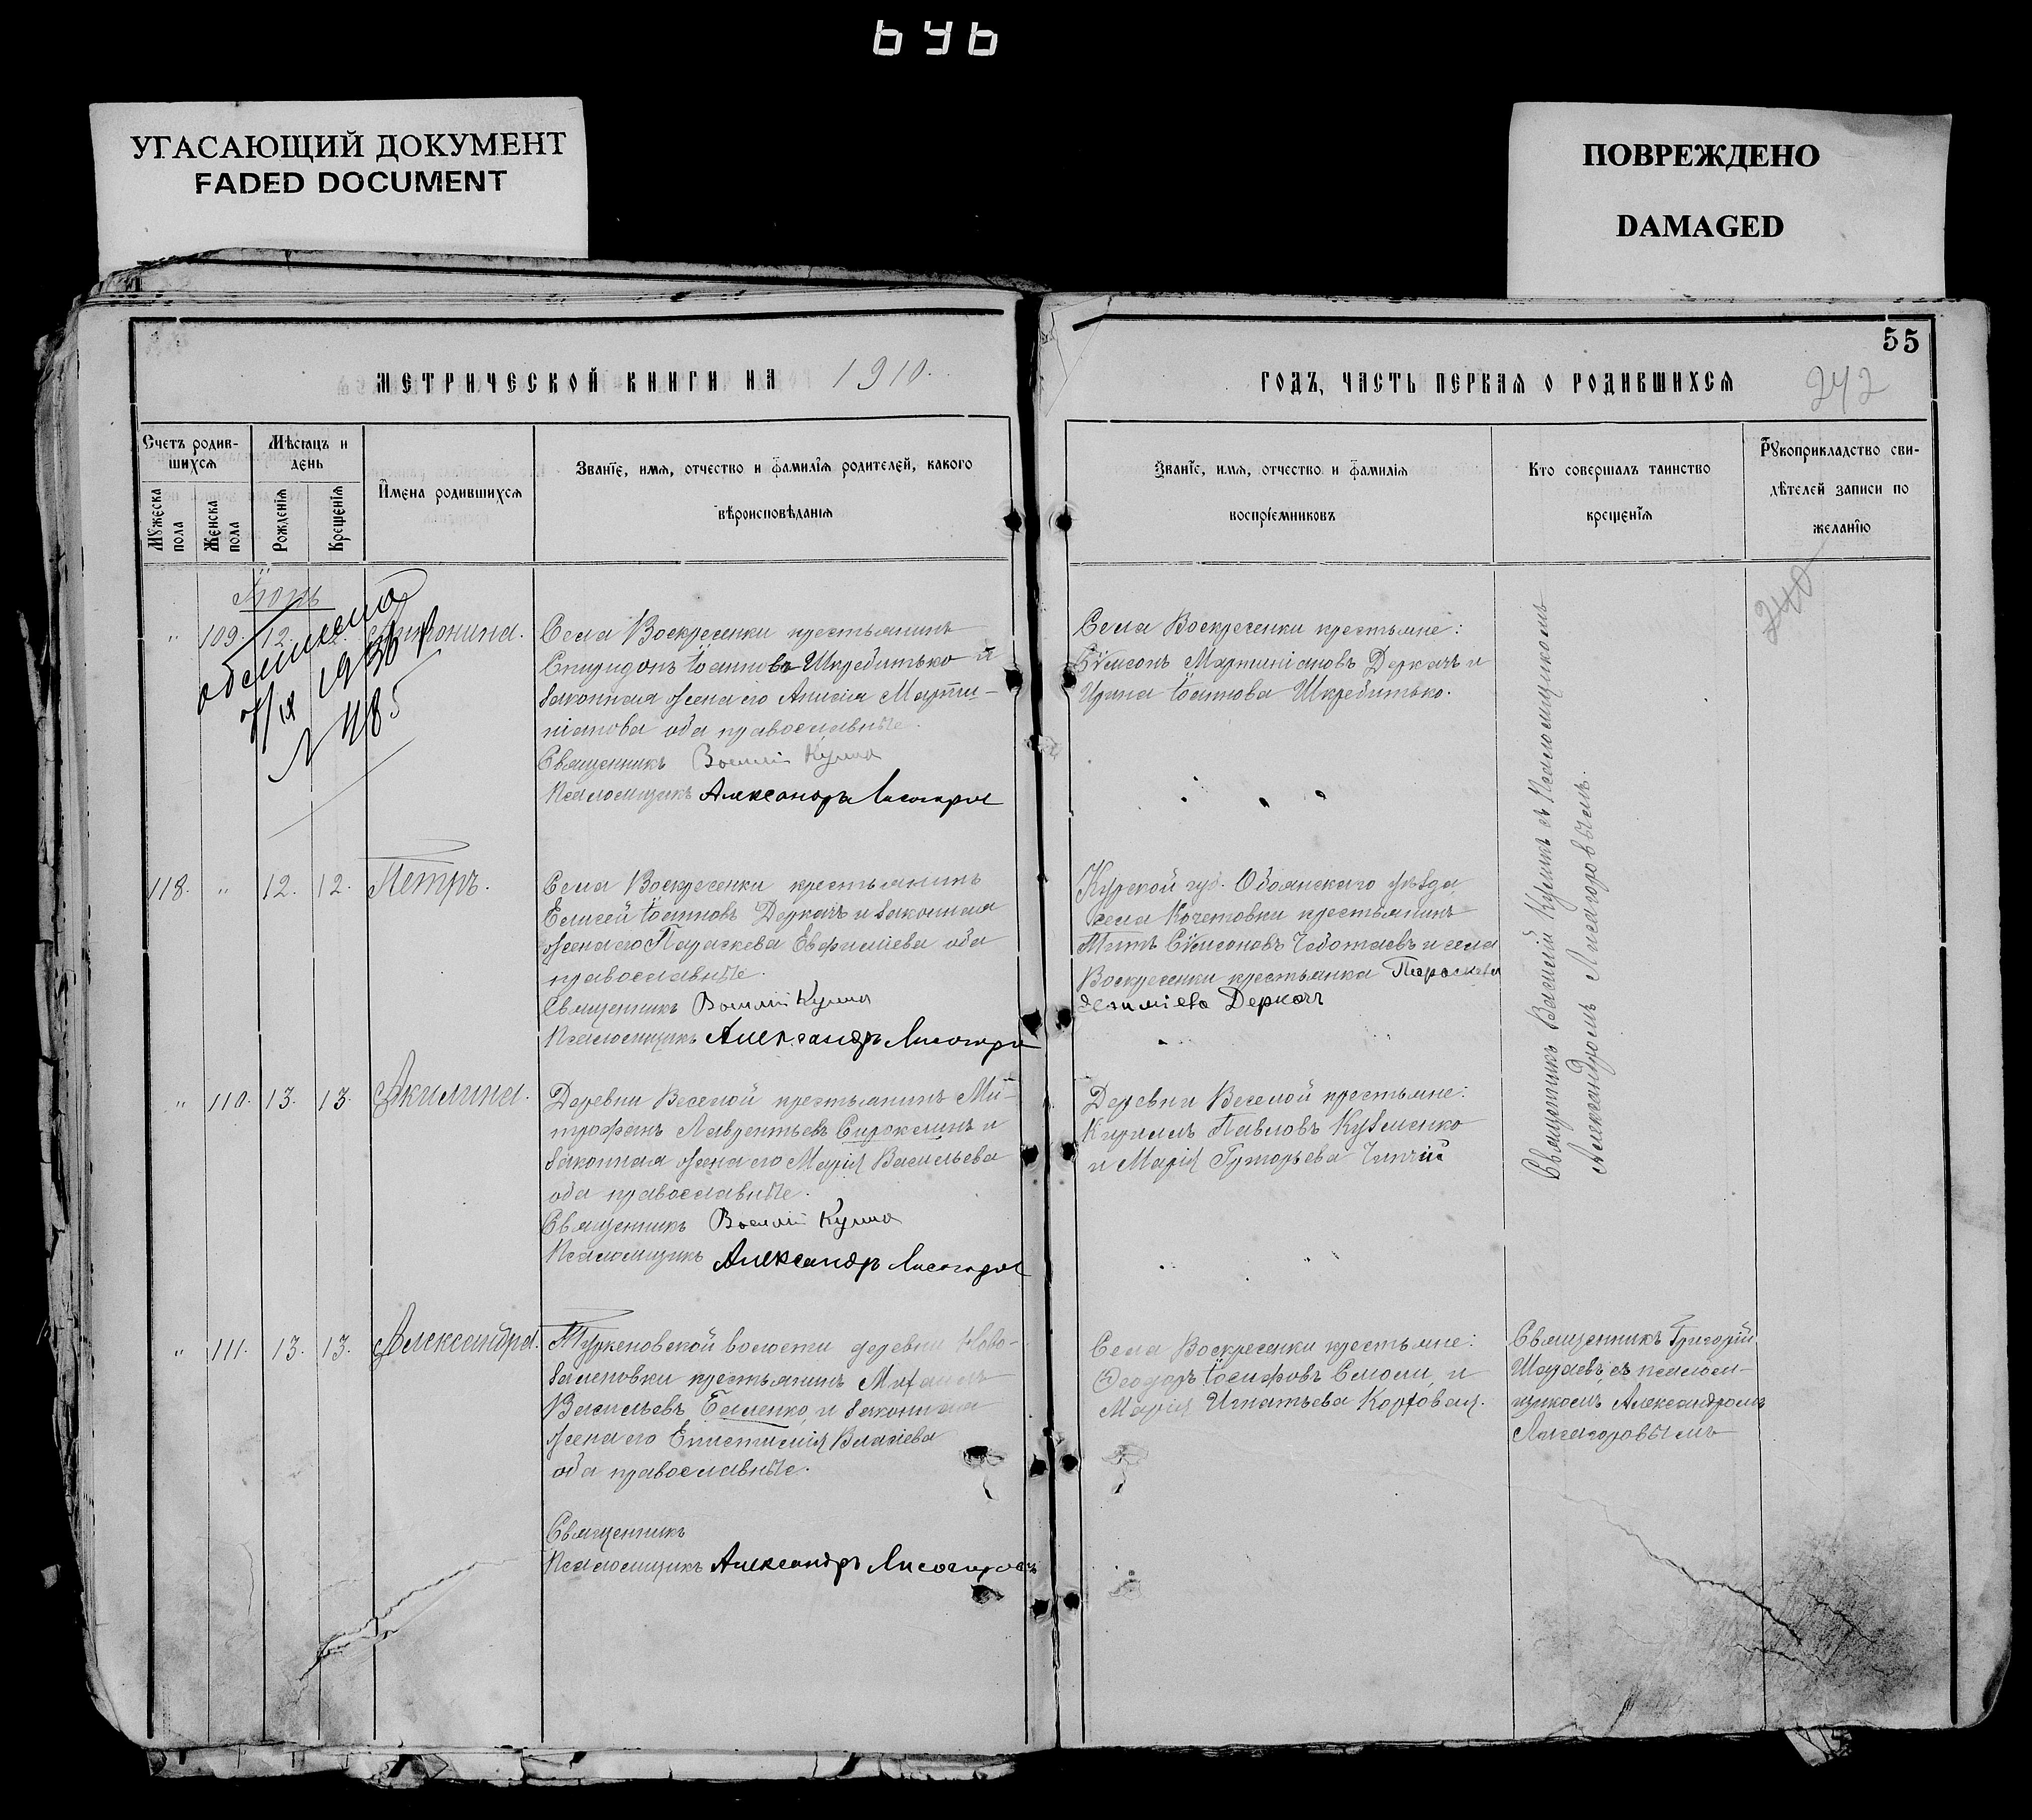 646
УГАСАЮЩИЙ ДОКУМЕНТ
FADED DOCUMENT
ПОВРЕЖДЕНО
DAMAGED
55
МЕТРИЧЕСКОЙ КНИГИ НА 1910.
ГОДЪ, ЧАСТЬ ПЕРВАЯ О РОДИВШИХСЯ
242
Счетъ родив-
шихся
Мѣсяцъ и
день
Мужеска
пола
Женска
пола
Рожденія
Крещенія
Имена родившихся
Званіе, имя, отчество и фамилія родителей, какого
вѣроисповѣданія
Званіе, имя, отчество и фамилія
воспріемниковъ
Кто совершалъ таинство
крещенія
Рукоприкладство сви-
дѣтелей записи по
желанію
240
Іюнь
" 109. 12.
№ 485
Села Воскресенки крестьянинъ
Спиридонъ Іоанновъ Шкребитько и
законная жена его Анисія Марти-
ніанова оба православные.
Священникъ Василій
Псаломщикъ Александръ Лисогоров
Села Воскресенки крестьяне:
Сѵмеонъ Мартиніановъ Деркачъ и
Ирина Іоаннова Шкребитько.
Священникъ Василій съ Псаломщикомъ
Александромъ Лисогоровымъ.
118. " 12. 12. Петръ.
Села Воскресенки крестьянинъ
Елисей Іоанновъ Деркачъ и законная
жена его Параскева Евфиміева оба
православные.
Священникъ Василій
Псаломщикъ Александръ Лисогоро
Курской губ. Обоянскаго уѣзда
села Кочетовки крестьянинъ
Титъ Сѵмеоновъ Чеботаевъ и села
Воскресенки крестьянка Параскева
Деркачъ
" 110. 13. 13. Акилина.
Деревни Веселой крестьянинъ Ми-
трофанъ Лаврентьевъ Сирокминъ и
законная жена его Марія Васильева
оба православные.
Священникъ Василій
Псаломщикъ Александръ Лисогоров
Деревни Веселой крестьяне:
Кириллъ Павловъ Кузменко
и Марія Григорьева
" 111. 13. 13. Александра.
Туркеновской волости деревни Ново-
заленовки крестьянинъ Михаилъ
Васильевъ и законная
жена его Епистимія Власіева
оба православные.
Священникъ
Псаломщикъ Александръ Лисогоровъ
Села Воскресенки крестьяне:
Ѳеодоръ Іосифовъ и
Марія Игнатьева Корховая.
Священникъ Григорій
Шараевъ съ псалом-
щикомъ Александромъ
Лисогоровымъ